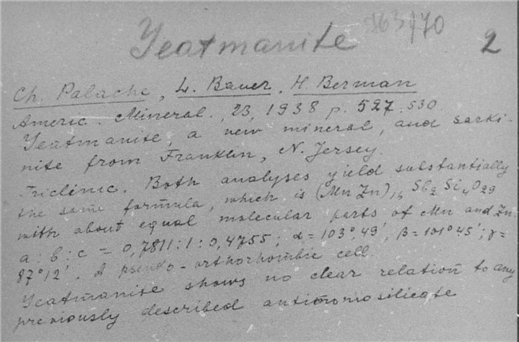 363/70
Yeatmanite
2
Ch. Palache, L. Bauer, H Berman
Americ. Mineral., 23, 1938 p. 527-530
Yeatmanite, a new mineral, and sarki-
nite from Franklin, N. Jersey.
Triclinic. Both analyses yield substantially
the same formula, which is (Mn Zn)16 Sb2 Si4 O29
with about equal molecular parts of Mn and Zn
a:b:c = 0,7811:1:0,4755; α=103°49', β=101°45'; γ=
87°12'. A pseudo-orthorhombic cell.
Yeatmanite shows no clear relation to any
previously described antimonosilicate